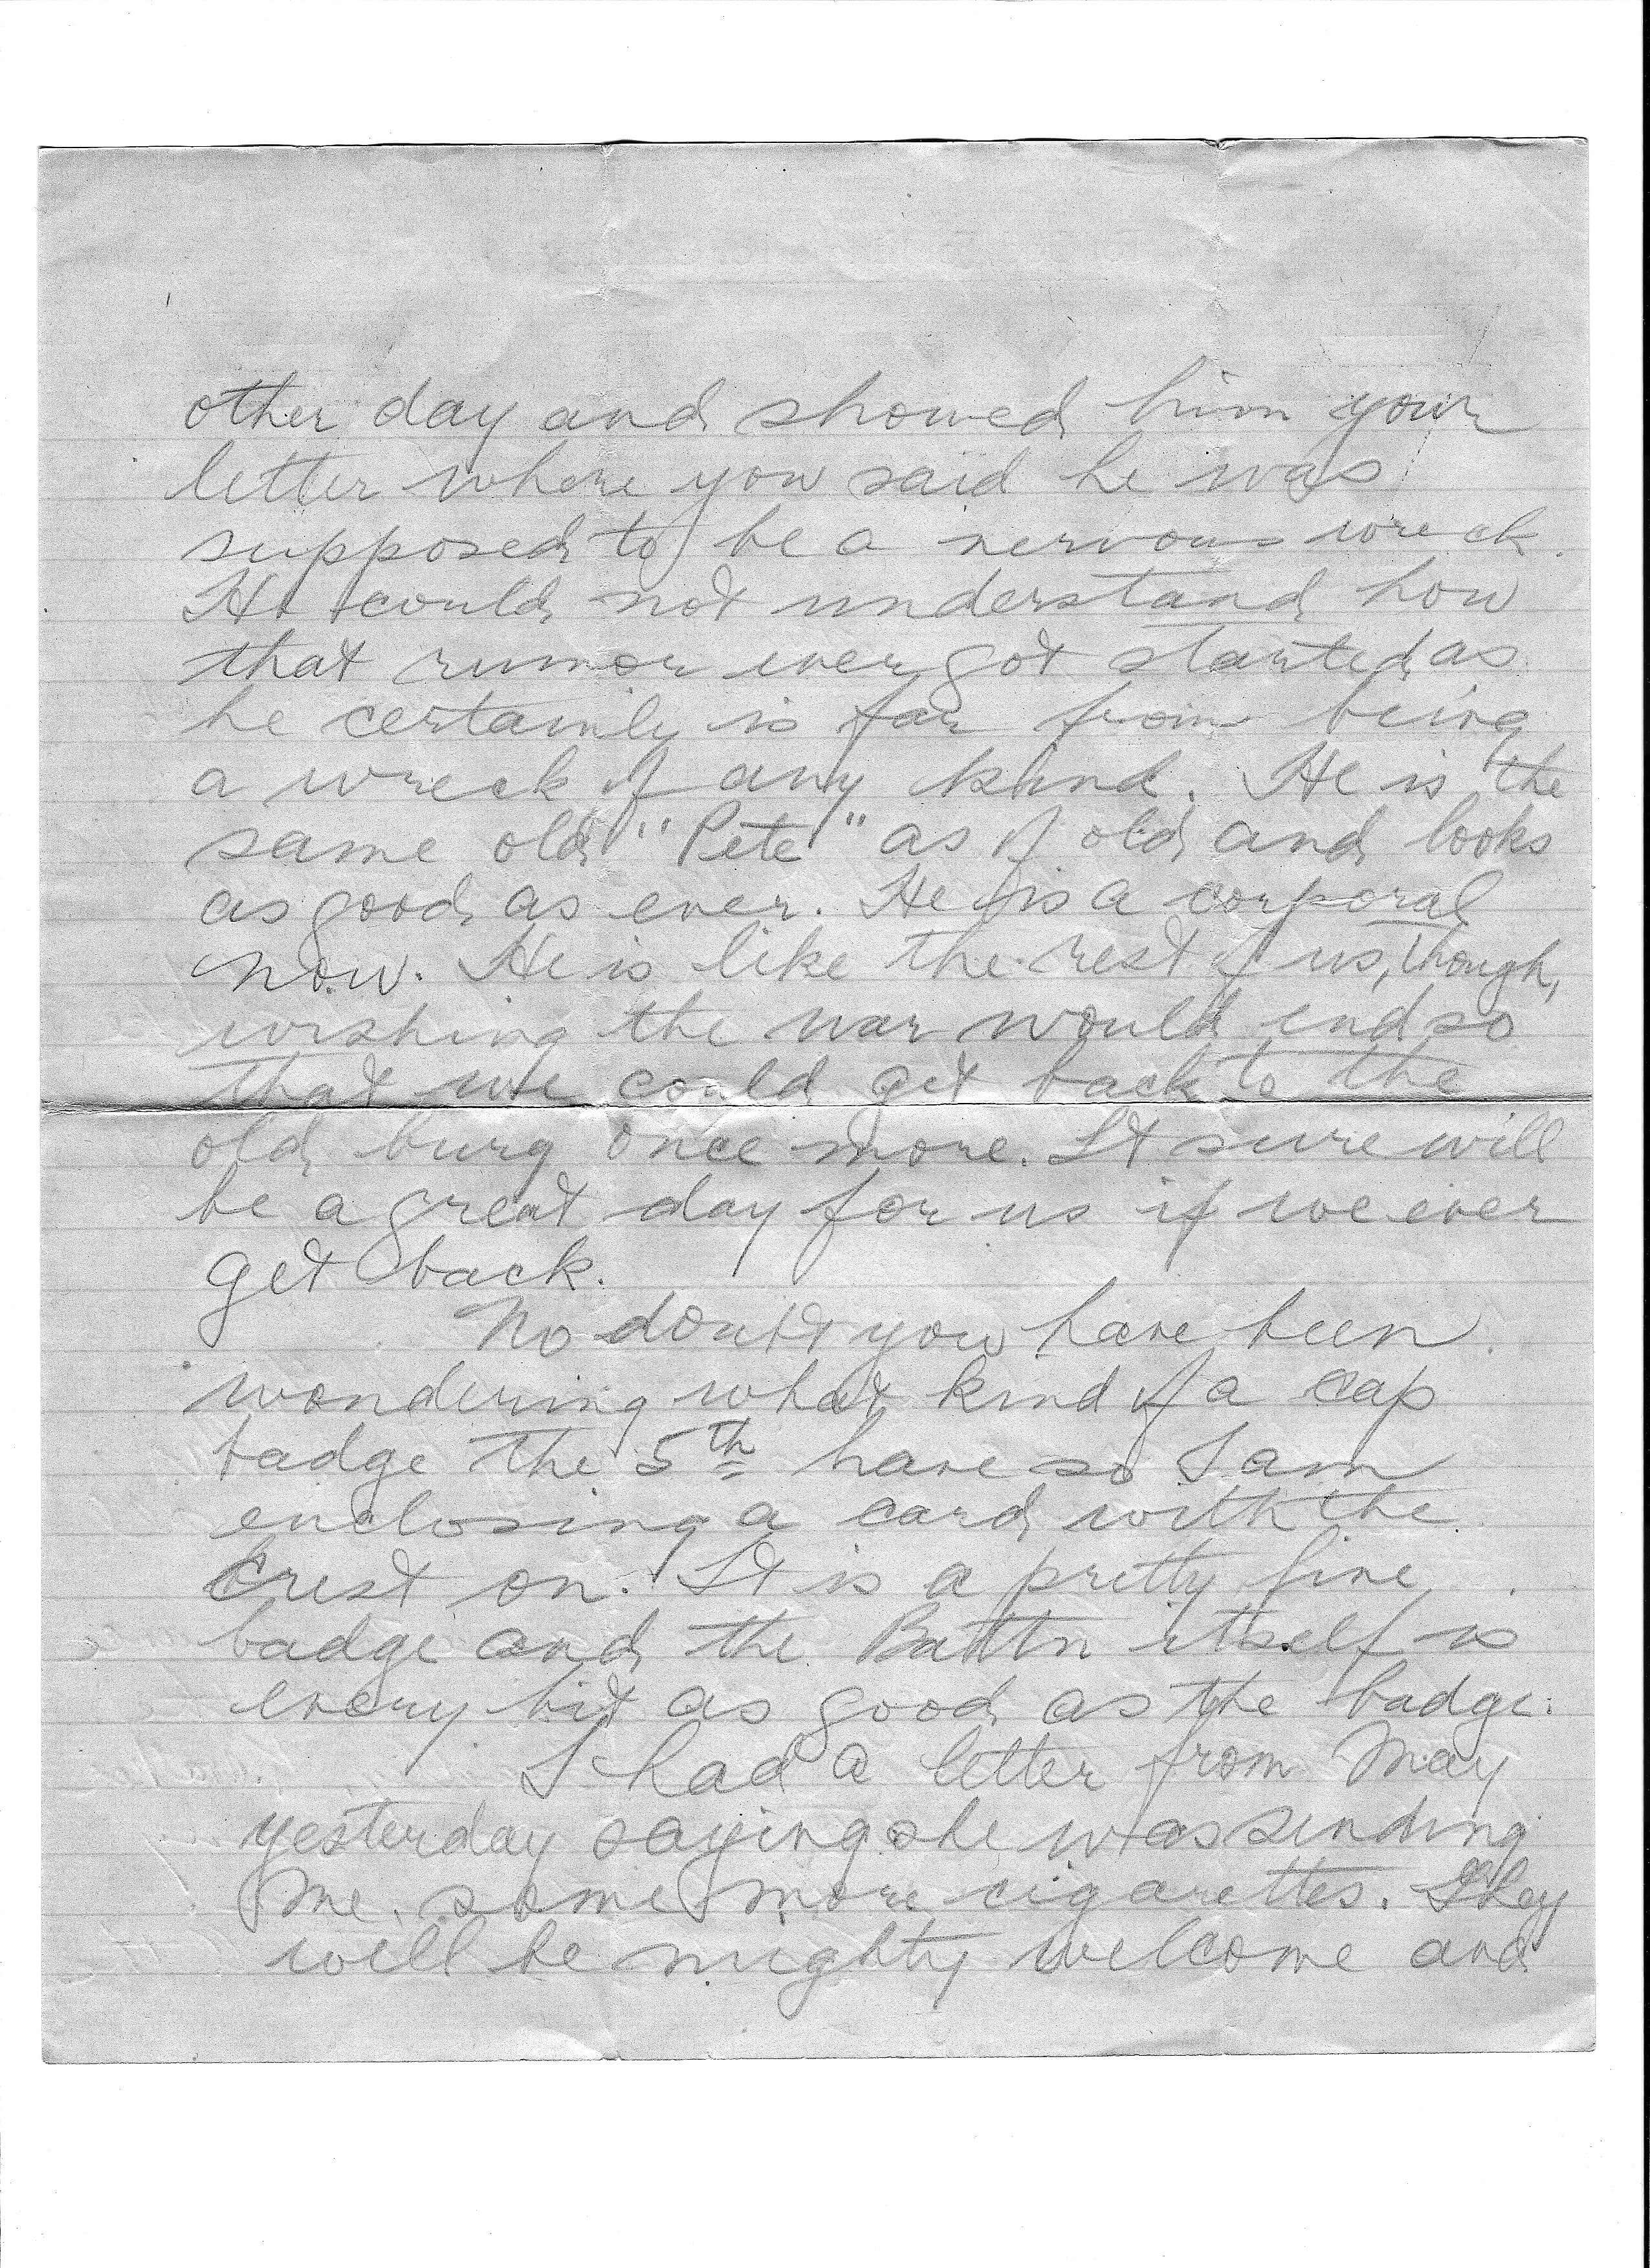 other day and showed him your
letter where you said he was
supposed to be a nervous wreck.
He could not understand how
that rumor ever got started as
he certainly is far from being
a wreck of any kind. He is the
same old "Pete" as of old and looks
as good as ever. He is a corporal
now. He is like the rest of us, though,
wishing the war would end so
that we could get back to the
old burg once more. It sure will
be a great day for us if we ever
get back.
No doubt you have been
wondering what kind of a cap
badge the 5th have so I am
enclosing a card with the
Crest on. It is a pretty fine
badge and the Battn itself is
every bit as good as the badge.
I had a letter from May
yesterday saying she was sending
me some more cigarettes. They
will be mighty welcome and